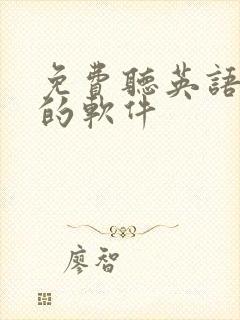 免費聽英語
的軟件
廖智